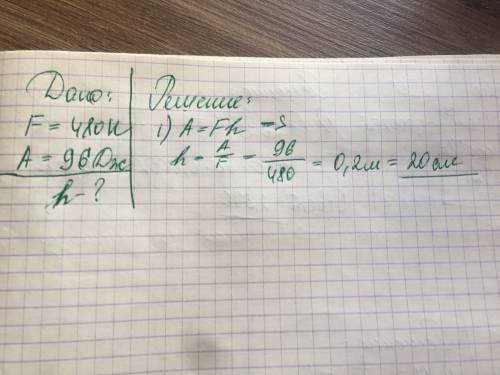 Дано:
F = 480Н
A = 96 Дж
h - ?
Решение:
1) A = Fh ⇒
h = A/F = 96/480 = 0,2м = 20см